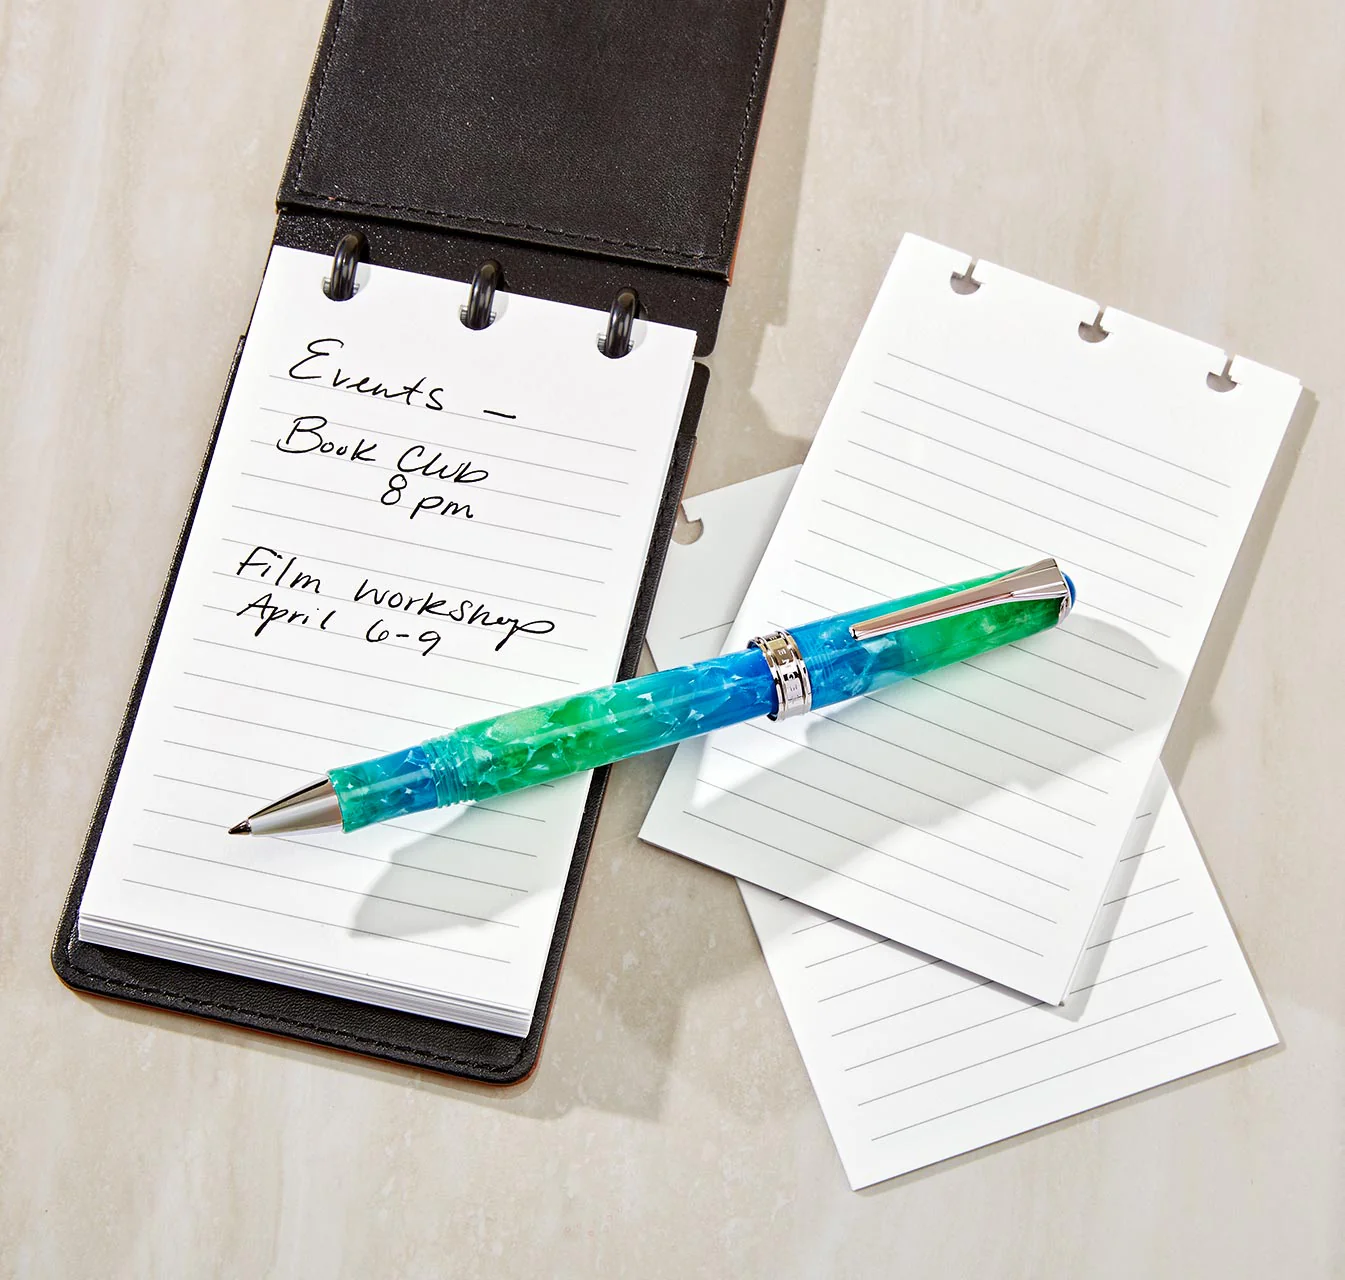 Events –
Book Club
8 pm
Film workshop
April 6-9